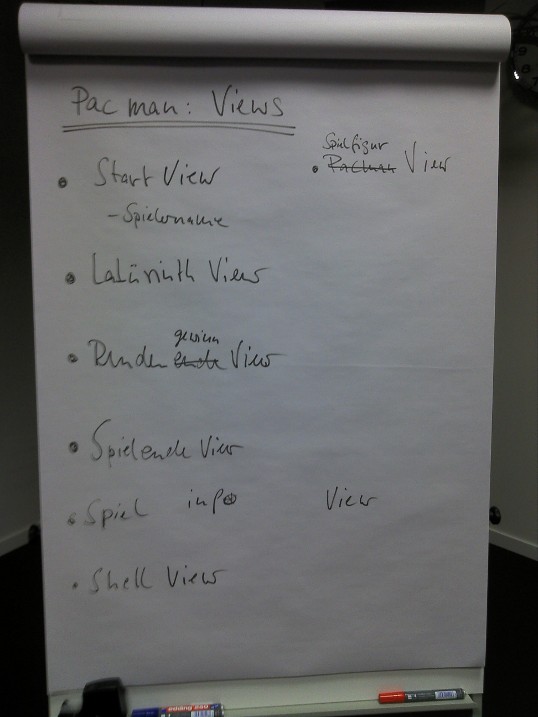 Pacman: Views
• Start View
- Spielername
• Labürinth View
• Runden ende gewinn View
• Spielende View
• Spiel info View
• Shell View
Spielfigur
• Pacman View
edding 250